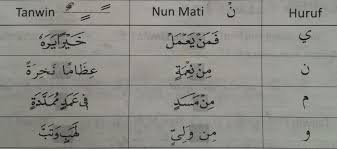 Tanwin ًٌٍ Nun Mati نْ Huruf
خَيْرًايَرَهُ فَمَنْ يَعْمَلْ ي
عِظَامًا نَخِرَةً مِنْ نِعْمَةٍ ن
فِى عَمَدٍ مُمَدَّدَةٍ مِنْ مَسَدٍ م
لَهَبٍ وَتَبَّ مِن وَلِيٍّ و